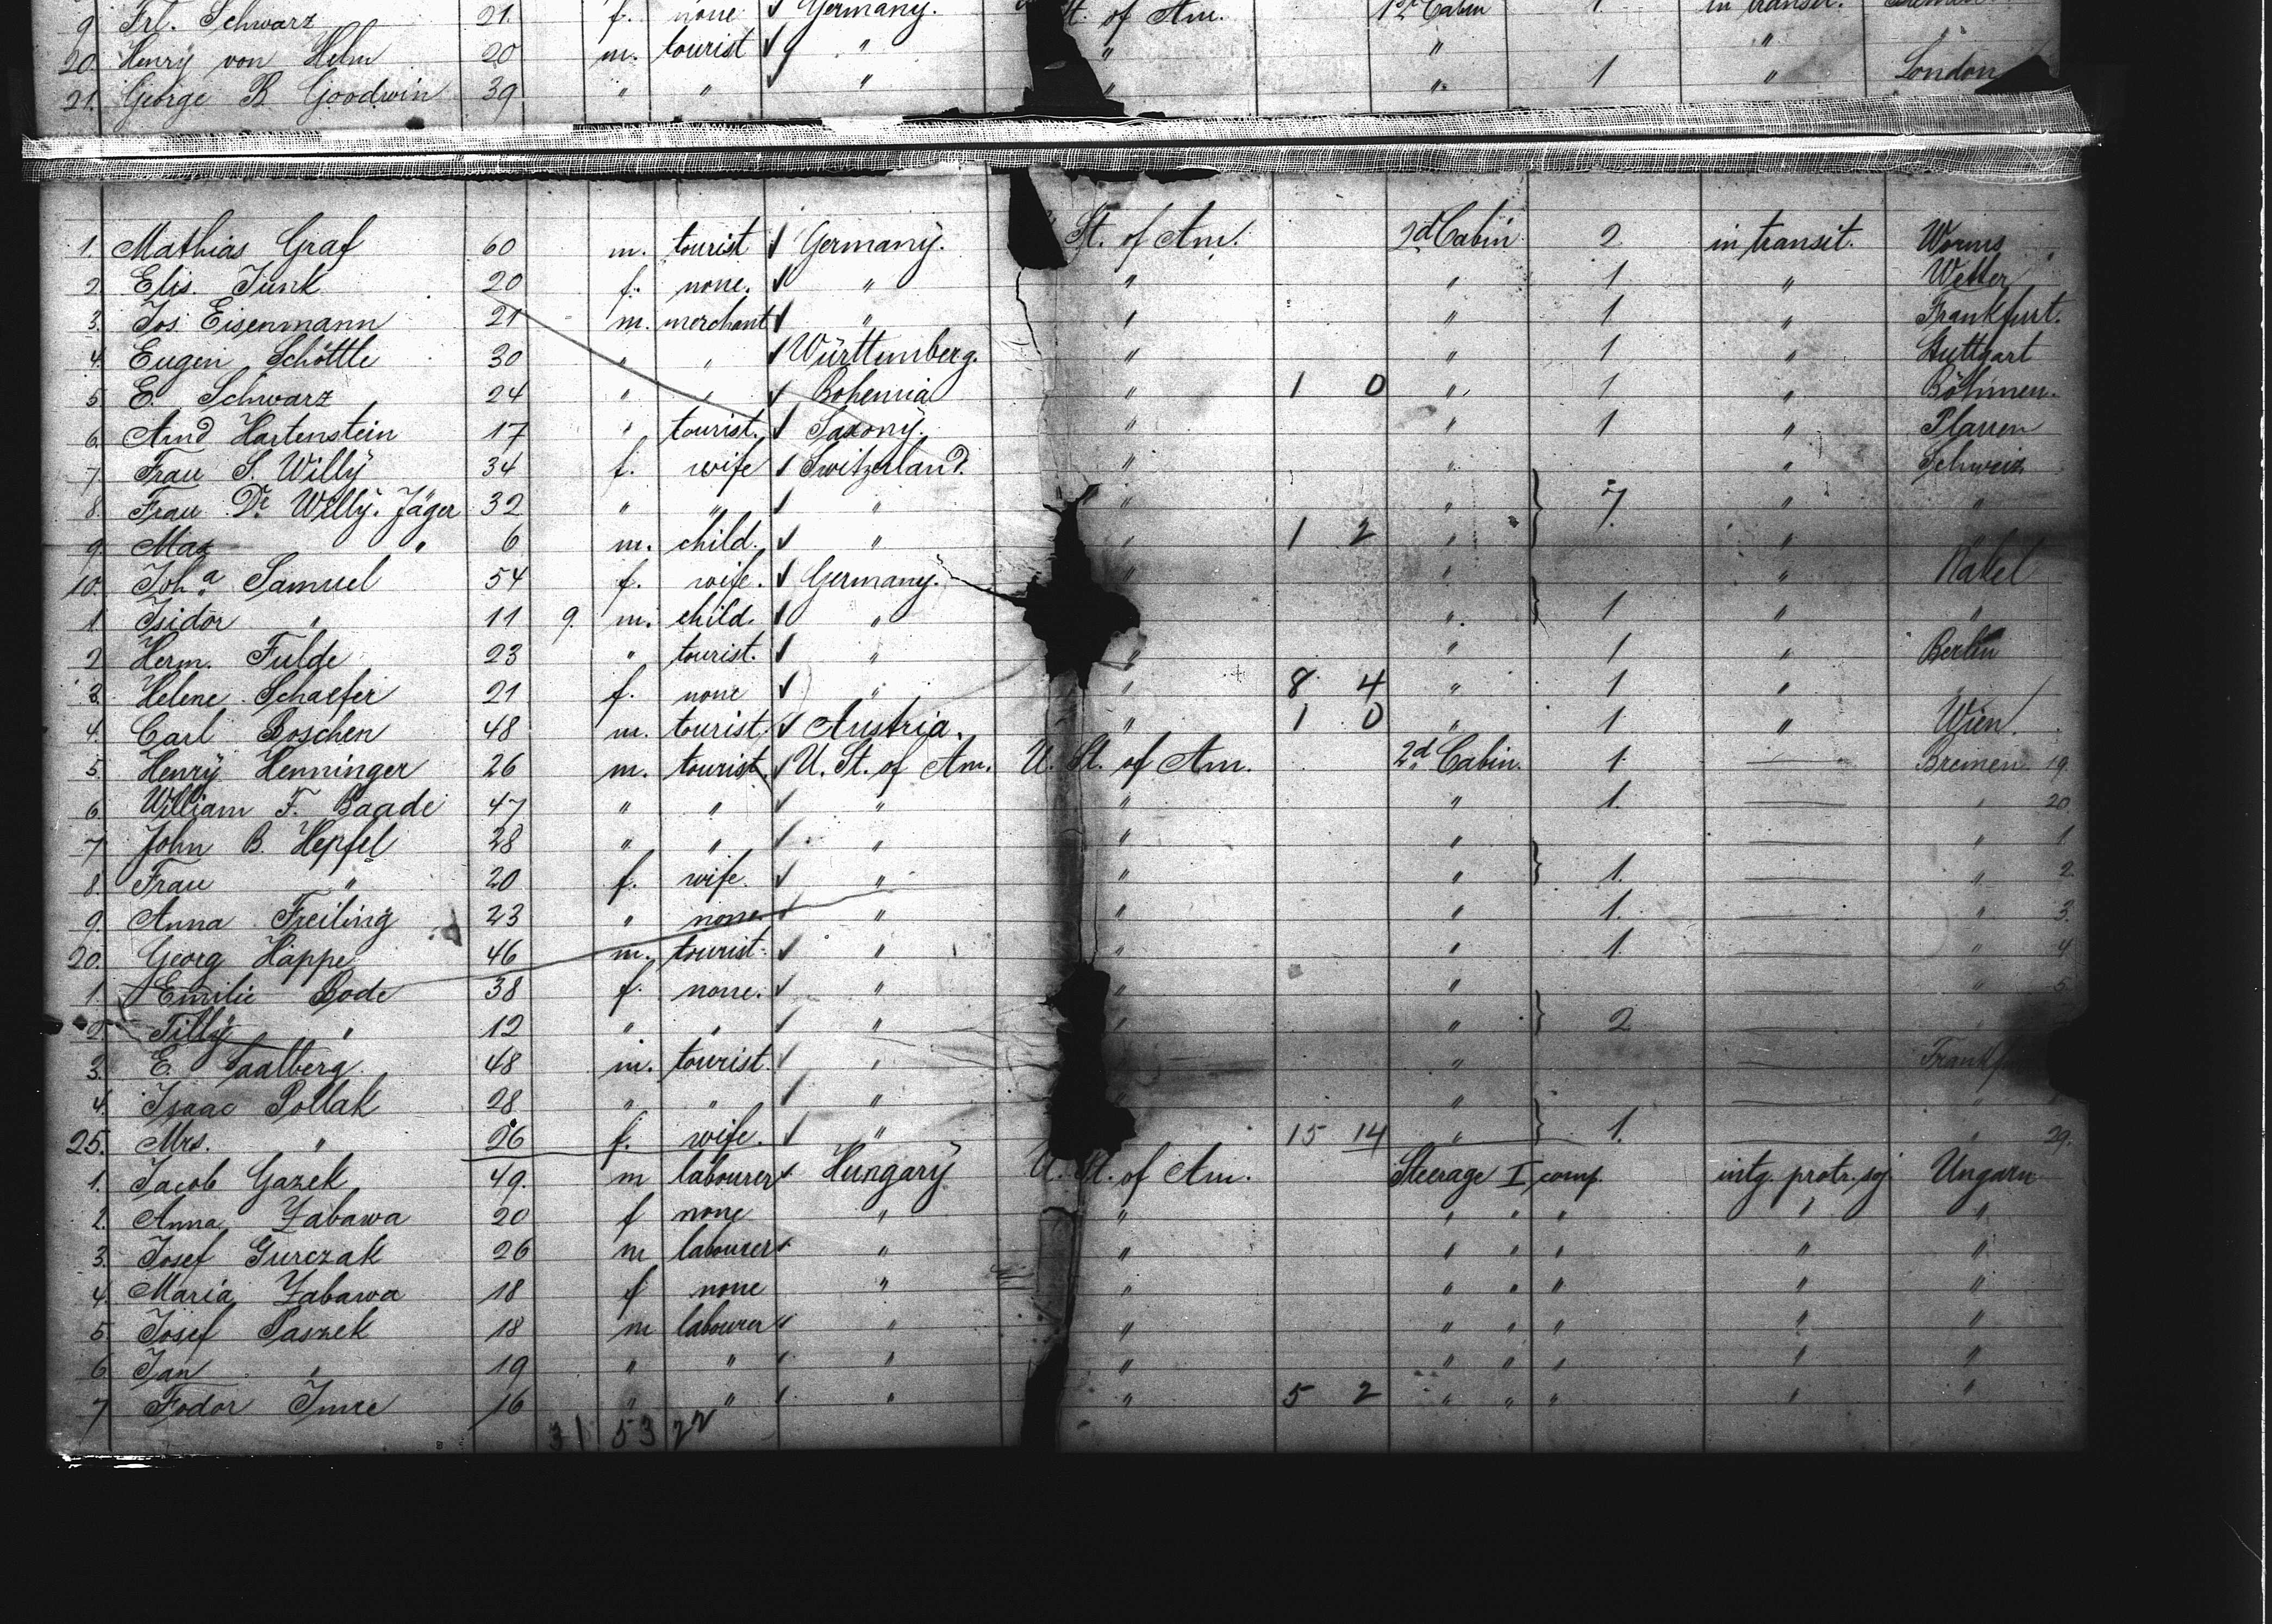 9 Frl. Schwarz 21. f. none Germany. St. of Am. 1st Cabin 1. in transit. Bremen.
20. Henry von Helm 20 m. tourist " " " "
21. George B. Goodwin 39 " " " " " 1 " London
1. Mathias Graf 60 m. tourist Germany. St. of Am. 2d Cabin 2. in transit. Worms
2. Elis. Junk 20 f. none. " " " 1. " Wetter
3. Jos. Eisenmann 21 m. merchant " " " 1 " Frankfurt.
4. Eugen Schöttle 30 " " Württemberg. " " 1 " Stuttgart
5. E. Schwarz 24 " " Bohemia " 1 0 " 1 " Böhmen.
6. Arnd Hartenstein 17 " tourist. Saxony. " " 1 " Plauen
7. Frau S. Willy 34 f. wife Switzerland. " " " Schweiz
8. Frau Dr. Willy-Jäger 32 " " " " " 7. " "
9. Max " 6 m. child. " " 1 2 " " "
10. Joha. Samuel 54 f. wife. Germany. " " " Nakel
1. Isidor " 11 9. m. child. " " 1 " "
2. Herm. Fulde 23 " tourist. " " " 1 " Berlin
3. Helene Schaefer 21 f. none " " 8 4 " 1 " "
4. Carl Boschen 48 m. tourist. Austria. " 1 0 " 1 " Wien.
5. Henry Henninger 26 m. tourist. U. St. of Am. U. St. of Am. 2d Cabin. 1. Bremen 19.
6. William F. Baade 47 " " " " " 1. " 20
7. John B. Hepfel 28 " " " " " " 1.
8. Frau " 20 f. wife. " " " 1. " 2.
9. Anna Freiling 23 " none. " " " 1. " 3.
20. Georg Happe 46 m. tourist. " " " 1. " 4
1. Emilie Bode 38 f. none. " " " " 5.
2. Tilly " 12 " " " " " 2
3. E. Saalberg. 48 m. tourist. " " Frankf
4. Isaac Pollak 28 " " " " " "
25. Mrs. " 26 f. wife. " 15 14 " 1. " 29.
1. Jacob Gazek 49. m labourer Hungary U. St. of Am. Steerage I comp. intg. protr. soj. Ungarn
2. Anna Zabawa 20 f none " " " " " " "
3. Josef Gurczak 26 m labourer " " " " " " "
4. Maria Zabawa 18 f none " " " " " " "
5. Josef Paszek 18 m labourer " " " " " " "
6. Jan " 19 " " " " " " " " "
7 Fodor Imre 16 " " " " 5 2 " " " " "
31 53 22